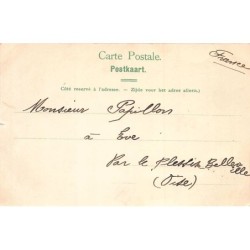 Carte Postale.
France
Postkaart.
Côté réservé à l'adresse. — Zijde voor het adres alleen.
Monsieur Papillon
à Eve
Par le Plessis Belleville
(Oise)